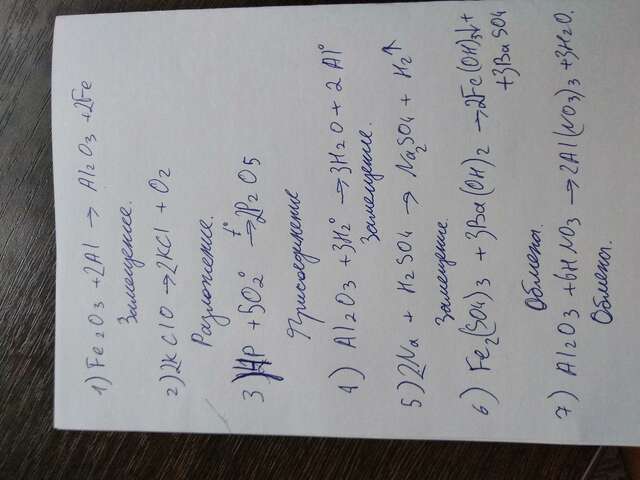 1) Fe2O3 + 2Al → Al2O3 + 2Fe
Замещение.
2) 2KClO → 2KCl + O2
Разложение.
3) 4P + 5O2° t°→ 2P2O5
Присоединение
4) Al2O3 + 3H2° → 3H2O + 2Al°
Замещение.
5) 2Na + H2SO4 → Na2SO4 + H2↑
Замещение
6) Fe2(SO4)3 + 3Ba(OH)2 → 2Fe(OH)3↓ +
+ 3BaSO4
Обмена.
7) Al2O3 + 6HNO3 → 2Al(NO3)3 + 3H2O.
Обмена.